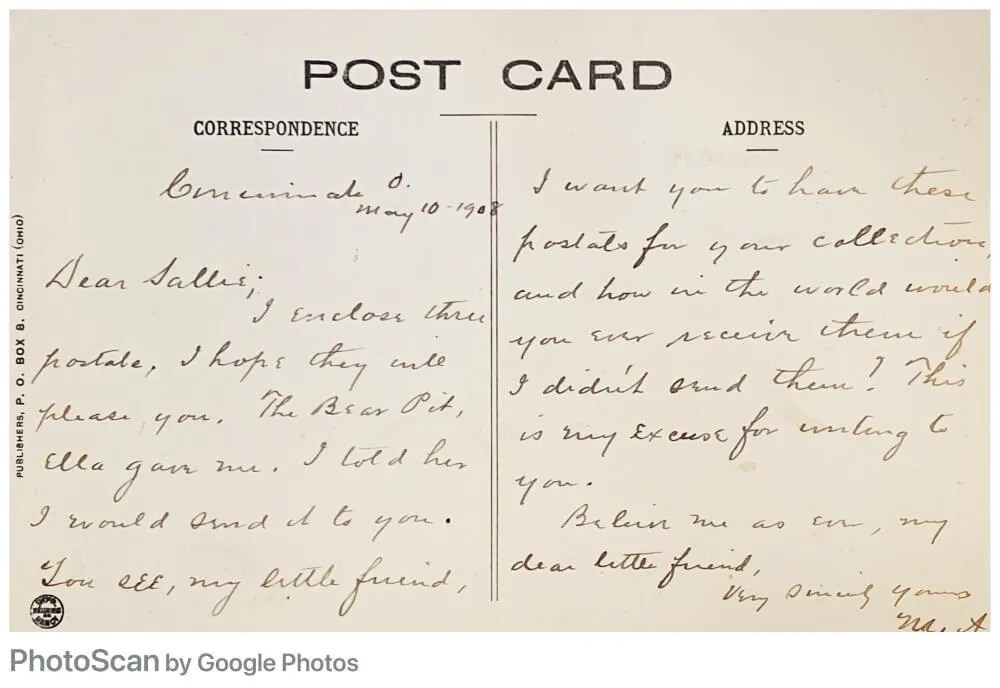 POST CARD
CORRESPONDENCE
Cincinnati O.
May 10-1908
Dear Sallie;
I enclose three
postals, I hope they will
please you. The Bear Pit,
Ella gave me. I told her
I would send it to you.
You see, my little friend,
ADDRESS
I want you to have these
postals for your collection,
and how in the world would
you ever receive them if
I didn't send them! This
is my excuse for writing to
you.
Believe me as ever, my
dear little friend,
Very sincerely yours
PUBLISHERS, P. O. BOX 8. CINCINNATI (OHIO)
PhotoScan by Google Photos